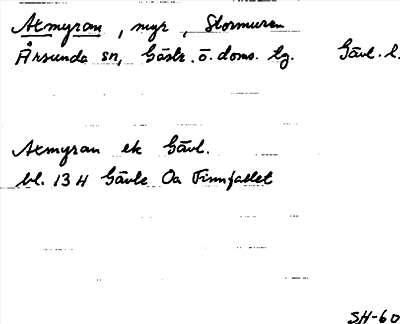 Axmyran, myr, Stormuren
Årsunda sn, Gästr. ö. doms. lg. Gävl. l.
Axmyran ek Gävl.
bl. 13 H Gävle Oa Finnfallet
SH-60